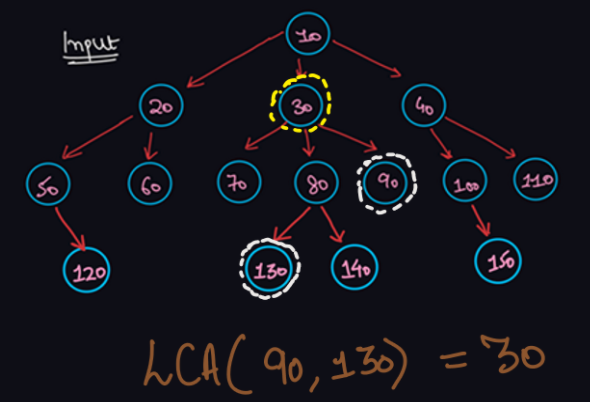 Input
10
20 30 40
50 60 70 80 90 100 110
120 130 140 150
LCA( 90, 130) = 30